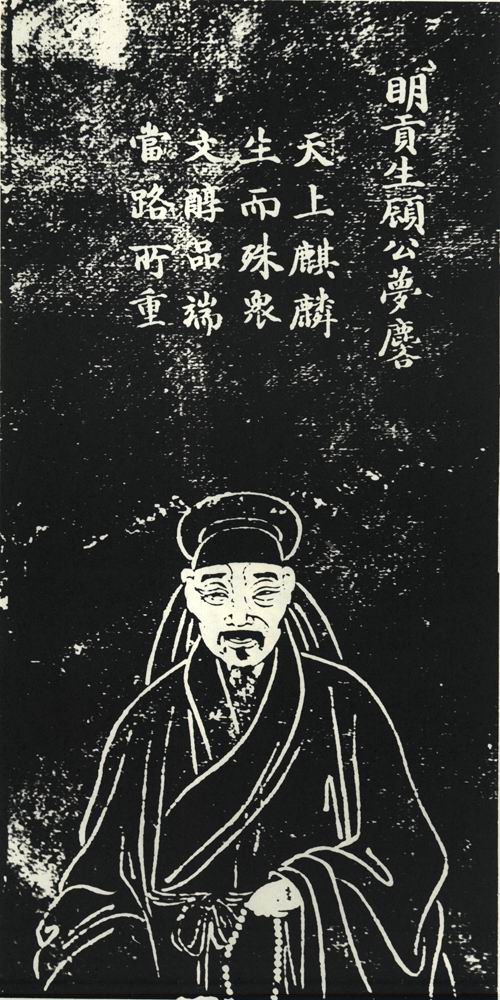 明貢生顧公夢麐
天上麒麟
生而殊眾
文醇品端
當路所重